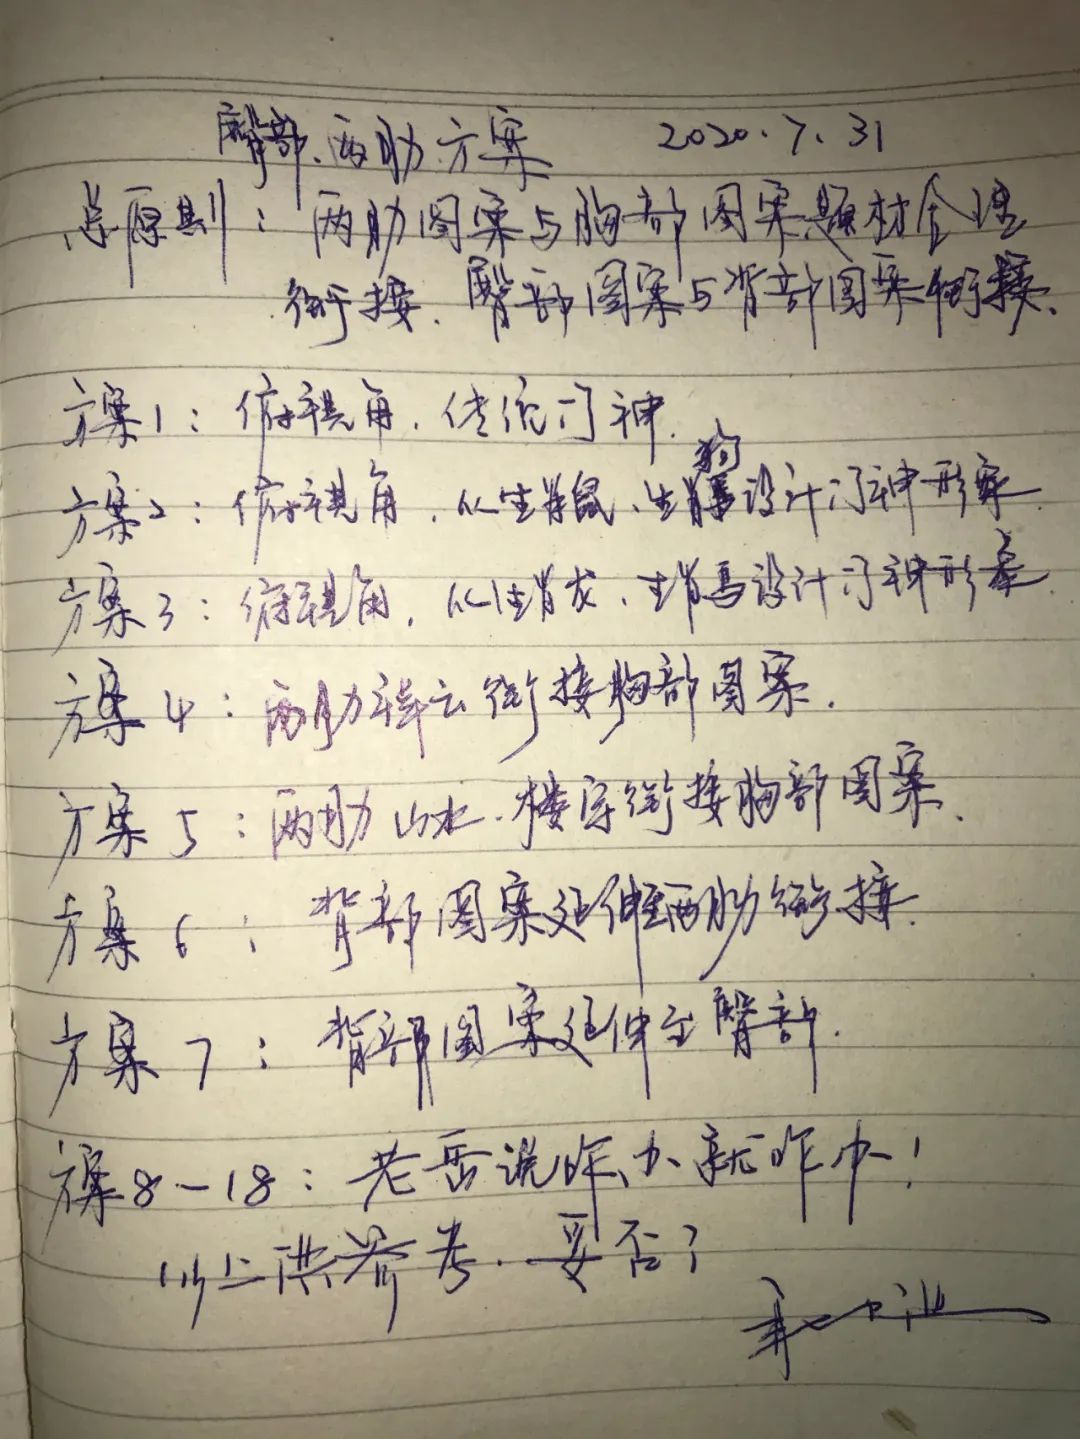 臀部、两肋方案 2020.7.31
总原则：两肋图案与胸部图案题材合理
衔接、臀部图案与背部图案衔接、
方案1：俯视角，传统门神.
方案2：俯视角，以生肖鼠、生肖狗设计门神形象.
方案3：俯视角，以生肖龙、生肖马设计门神形象.
方案4：两肋祥云衔接胸部图案.
方案5：两肋山水、楼宇衔接胸部图案、
方案6：背部图案延伸至两肋衔接.
方案7：背部图案延伸至臀部.
方案8—18：老岳说咋办就咋办！
以上供参考、妥否？